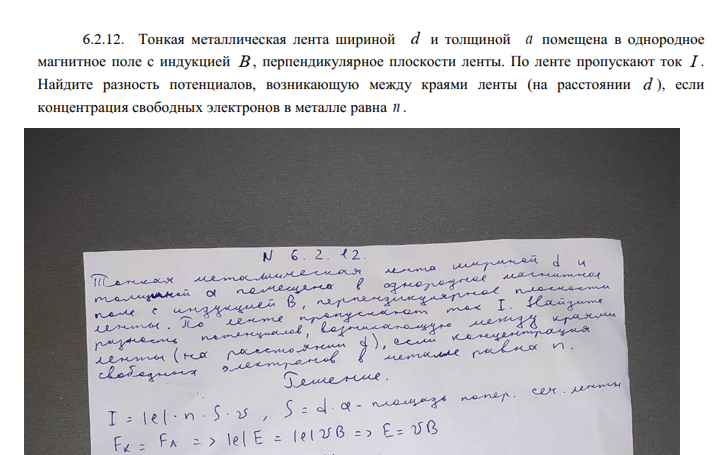 6.2.12. Тонкая металлическая лента шириной d и толщиной a помещена в однородное
магнитное поле с индукцией B, перпендикулярное плоскости ленты. По ленте пропускают ток I.
Найдите разность потенциалов, возникающую между краями ленты (на расстоянии d), если
концентрация свободных электронов в металле равна n.
N 6.2.12.
Тонкая металлическая лента шириной d и
толщиной a помещена в однородное магнитное
поле с индукцией B, перпендикулярное плоскости
ленты. По ленте пропускают ток I. Найдите
разность потенциалов, возникающую между краями
ленты (на расстоянии d), если концентрация
свободных электронов в металле равна n.
Решение.
I = |e|·n·S·v, S = d·a - площадь попер. сеч. ленты
Fк = Fл => |e|E = |e|vB => E = vB